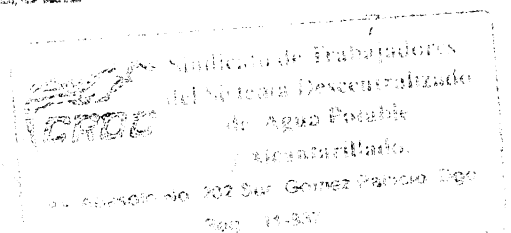 Sindicato de Trabajadores
del Sistema Descentralizado
de Agua Potable
y Alcantarillado.
CROC
No. 202 Sur Gomez Palacio Dgo
Reg.